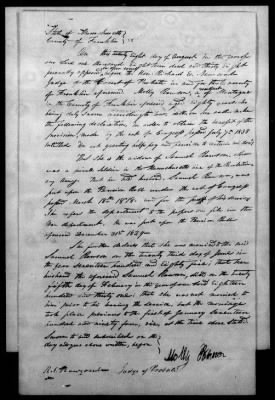 State of Massachusetts
County of Franklin } SS
On this twenty eight day of August in the year of
our Lord one thousand eight hundred and thirty eight
personally appeared before the Hon. Richard E. Newcomb
Judge of the Court of Probate in and for the county
of Franklin aforesaid Molly Benson, of Montague
in the County of Franklin aforesaid aged eighty years who
being duly sworn according to law doth on her oath make
the following declaration in order to obtain the benefit of the
provision made by the act of Congress passed July 7th 1838
entitled An act granting half pay and pensions to certain widows
That She is the widow of Samuel Benson, who
was a private soldier in the Massachusetts line in the Revolution
ary Army that her late husband, Samuel Benson, was
put upon the Pension Roll under the act of Congress
passed March 18th 1818 and for the proof of his services
She refers the department to the papers on file in the
War department. He was put upon the Pension Roll
aforesaid
She further declares that she was married to the said
Samuel Benson on the twenty third day of June in the
year seventeen hundred and eighty that her
husband the aforesaid Samuel Benson died on the twenty
fifth day of February in the year eighteen
hundred and thirty that she was not married to
him prior to his leaving the service, but the marriage
took place previous to the first of January seventeen
hundred and ninety four, viz, at the time above stated
Sworn to and subscribed on the
day & year above written, before
Molly Benson
Judge of Probate